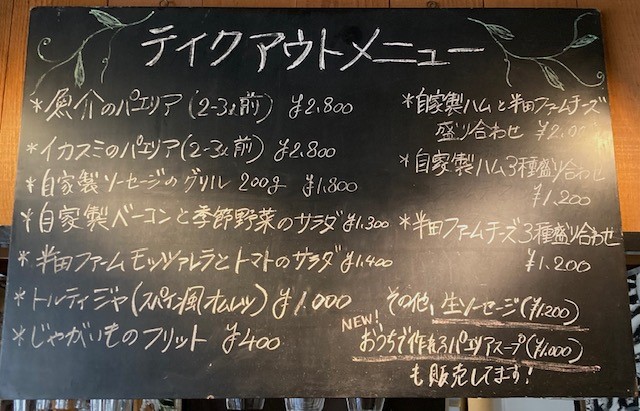 テイクアウトメニュー
*魚介のパエリア(2-3人前) ¥2.800
*イカスミのパエリア(2-3人前) ¥2.800
*自家製ソーセージのグリル 200g ¥1,800
*自家製ベーコンと季節野菜のサラダ ¥1.300
*半田ファームモッツァレラとトマトのサラダ ¥1.400
*トルティージャ(スペイン風オムレツ) ¥1.000
*じゃがいものフリット ¥400
*自家製ハムと半田ファームチーズ
盛り合わせ ¥2.000
*自家製ハム3種盛り合わせ
¥1,200
*半田ファームチーズ3種盛り合わせ
¥1.200
その他、生ソーセージ(¥1.200)
NEW!
おうちで作れるパエリアスープ(¥1.000)
も販売してます!